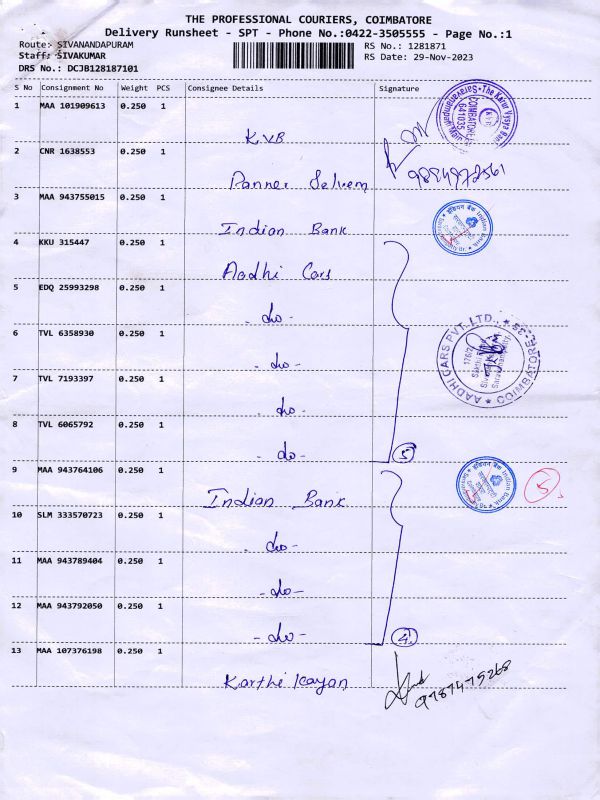 THE PROFESSIONAL COURIERS, COIMBATORE
Delivery Runsheet - SPT - Phone No.:0422-3505555 - Page No.:1
Route: SIVANANDAPURAM RS No.: 1281871
Staff: SIVAKUMAR RS Date: 29-Nov-2023
DRS No.: DCJB128187101
S No Consignment No Weight PCS Consignee Details Signature
1 MAA 101909613 0.250 1
KVB
2 CNR 1638553 0.250 1
Panner Selvem
3 MAA 943755015 0.250 1
Indian Bank
4 KKU 315447 0.250 1
Aadhi Cars
5 EDQ 25993298 0.250 1
- do -
6 TVL 6358930 0.250 1
- do -
7 TVL 7193397 0.250 1
- do -
8 TVL 6065792 0.250 1
- do - 5
9 MAA 943764106 0.250 1
Indian Bank 5
10 SLM 333570723 0.250 1
- do -
11 MAA 943789404 0.250 1
- do -
12 MAA 943792050 0.250 1
- do - 4
13 MAA 107376198 0.250 1
Karthi Kayan
9787475268
The Karur Vysya Bank
COIMBATORE
641035
इंडियन बैंक Indian Bank
AADHI CARS PVT. LTD., * COIMBATORE-35 *
इंडियन बैंक Indian Bank